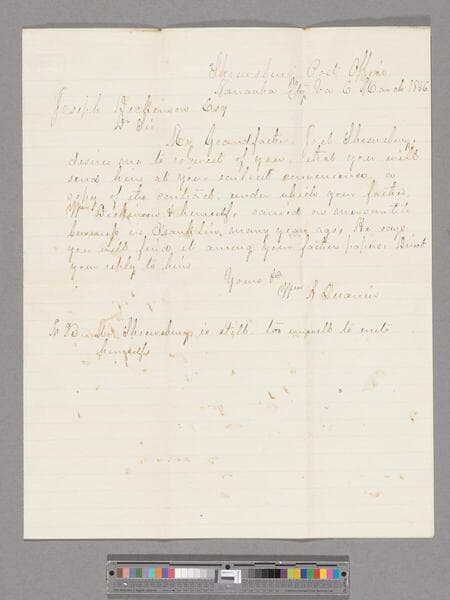 Shrewsbury Post Office
Kanawha Cty Va 6 March
Joseph Dickinson Esq
Dr Sir
My Grandfather Joel Shrewsbury
desires me to request of you, that you will
send him at your earliest convenience, a
copy of the contract, under which your father
Wm Dickinson & himself, carried on mercantile
business in Franklin, many years ago, He says
you will find it among your fathers papers. Direct
your reply to him
Yours &c
Wm A
N B Mr Shrewsbury is still too unwell to write
himself